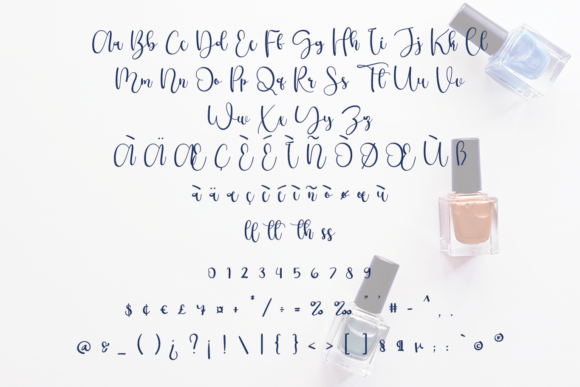 Aa Bb Cc Dd Ee Ff Gg Hh Ii Jj Kk Ll
Mm Nn Oo Pp Qq Rr Ss Tt Uu Vv
Ww Xx Yy Zz
À Ä Æ Ç È É Ì Ñ Ò Ø Œ Ù ß
à ä æ ç è é ì ñ ò ø œ ù
ll tt th ss
0 1 2 3 4 5 6 7 8 9
$ ¢ € £ ¥ ¤ + * / ÷ = % ‰ " ' # - ^ , .
@ & _ ( ) ¿ ? ¡ ! \ | { } < > [ ] § ¶ µ ; : ` © ®